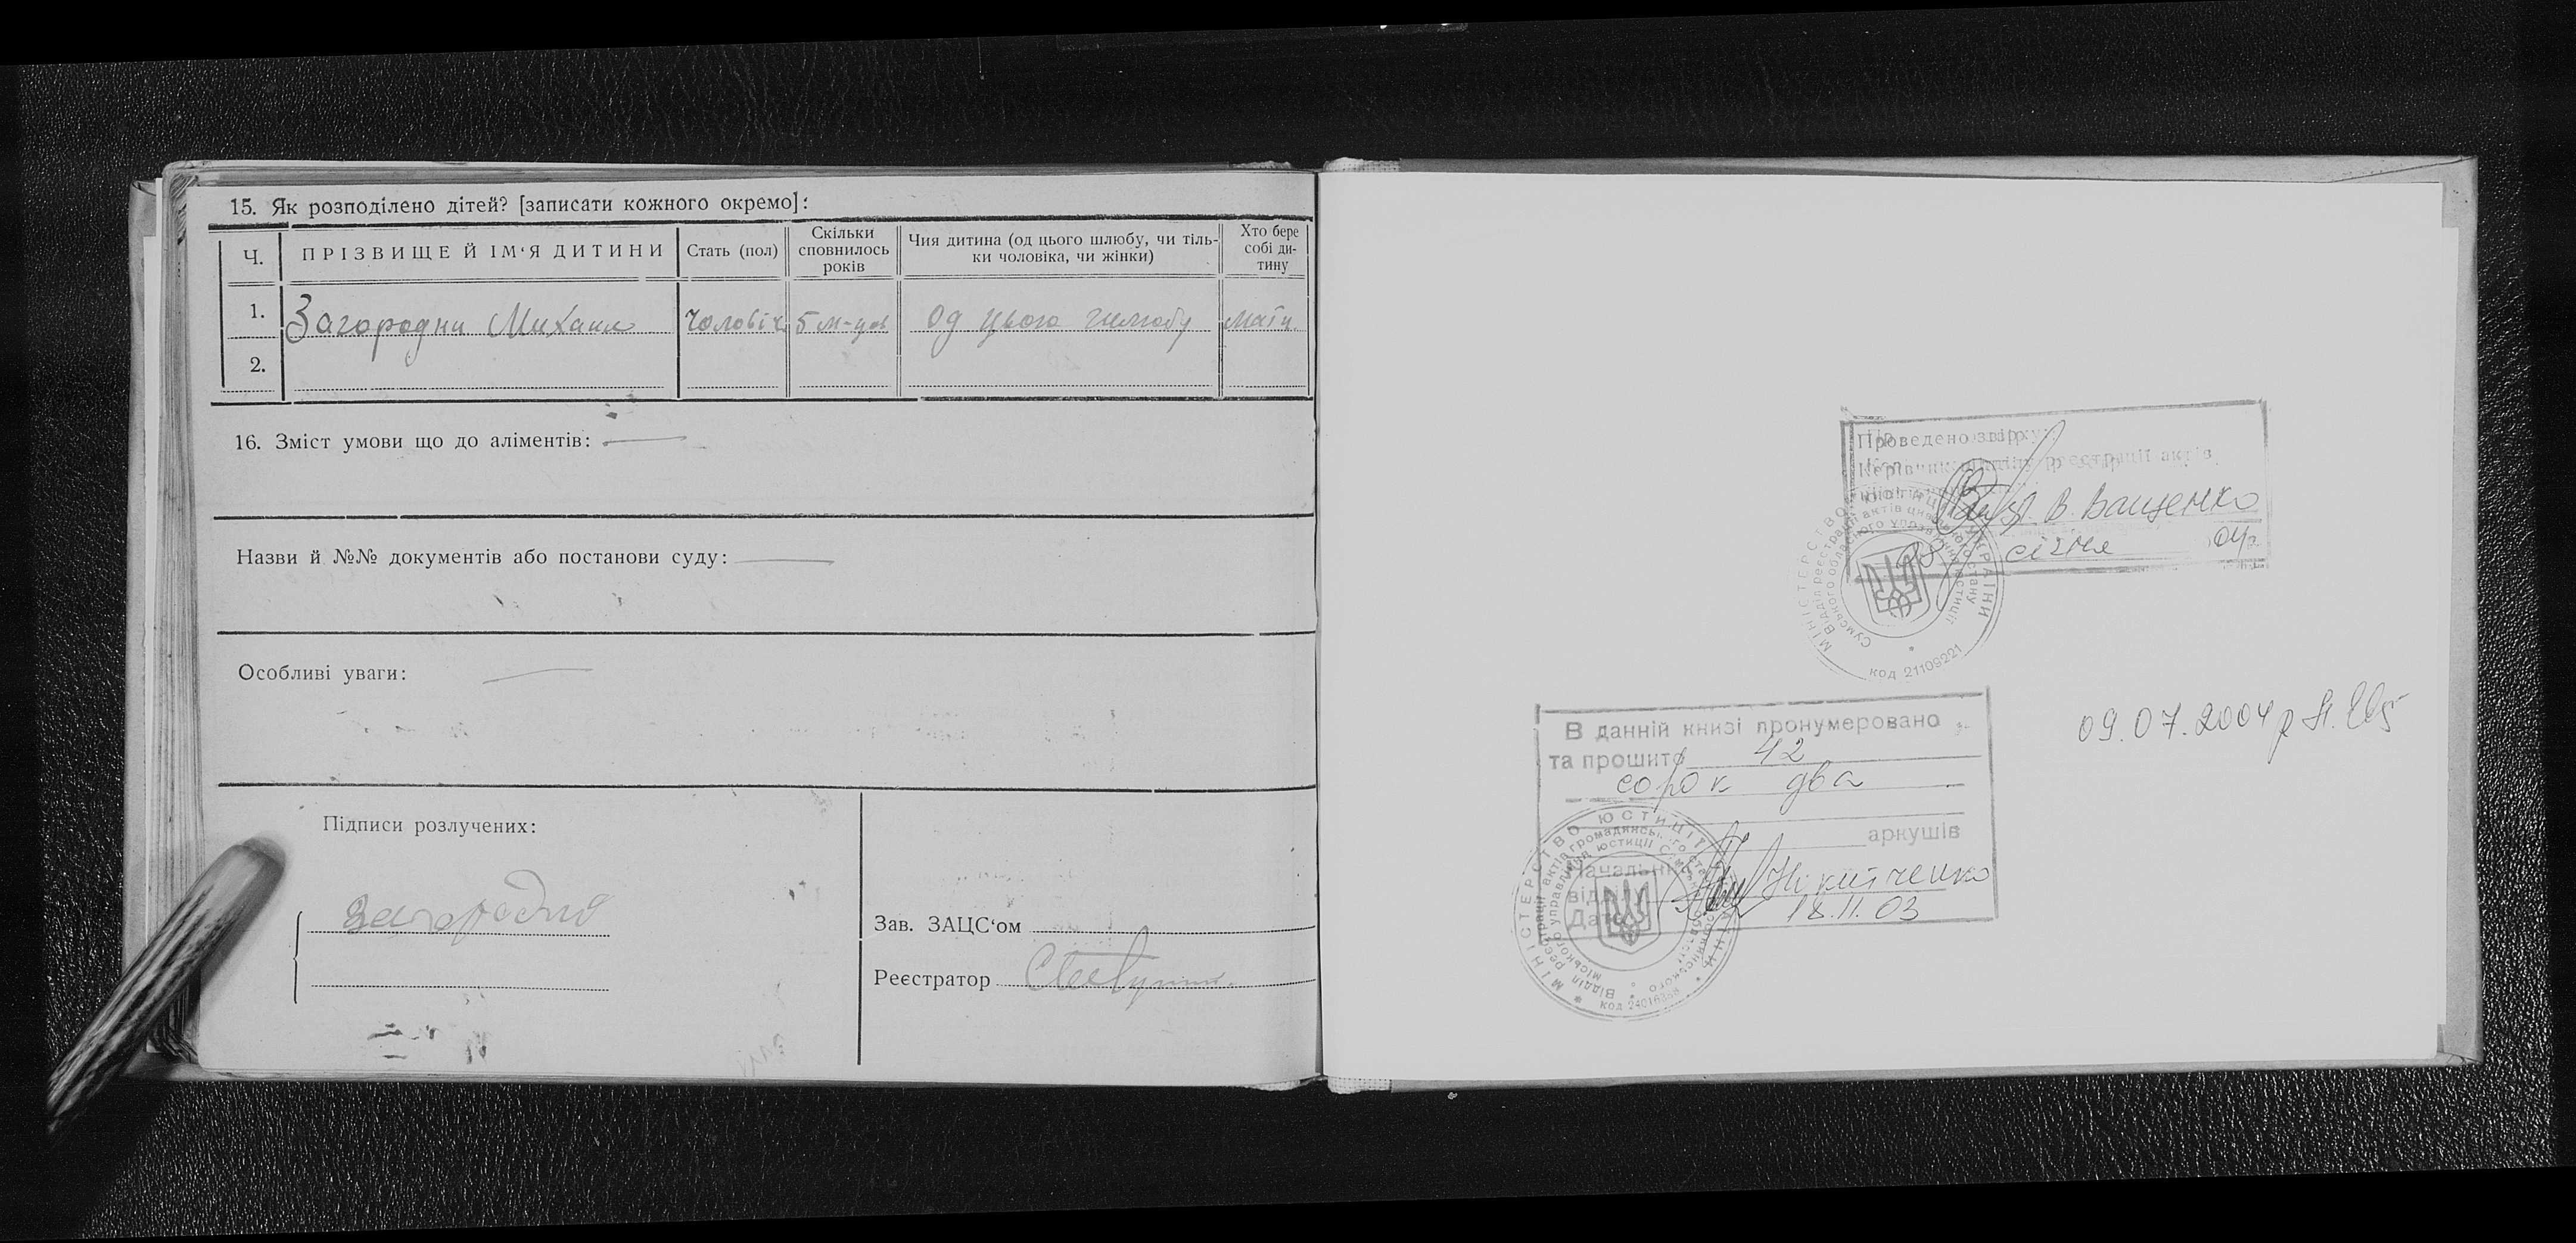 15. Як розподілено дітей? [записати кожного окремо]:
Ч. ПРІЗВИЩЕ Й ІМ‘Я ДИТИНИ Стать (пол) Скільки сповнилось років Чия дитина (од цього шлюбу, чи тільки чоловіка, чи жінки) Хто бере собі дитину
1. Загородни Михаил чоловіч 5 м-цев од цього шлюбу мати
2.
16. Зміст умови що до аліментів: —
Назви й №№ документів або постанови суду: —
Особливі уваги: —
Підписи розлучених:
Загородня
Зав. ЗАЦС‘ом
Реєстратор
Проведено звірку
Керівник реєстрації актів
В. Ващенко
січня 04р.
МІНІСТЕРСТВО ЮСТИЦІЇ УКРАЇНИ
Відділ реєстрації актів цивільного стану
Сумського обласного управління юстиції
код 21109221
В данній книзі пронумеровано
та прошито 42
сорок два
аркушів
Начальник
відділу Нікитченко
Дата 18.11.03
МІНІСТЕРСТВО ЮСТИЦІЇ УКРАЇНИ
09.07.2004р